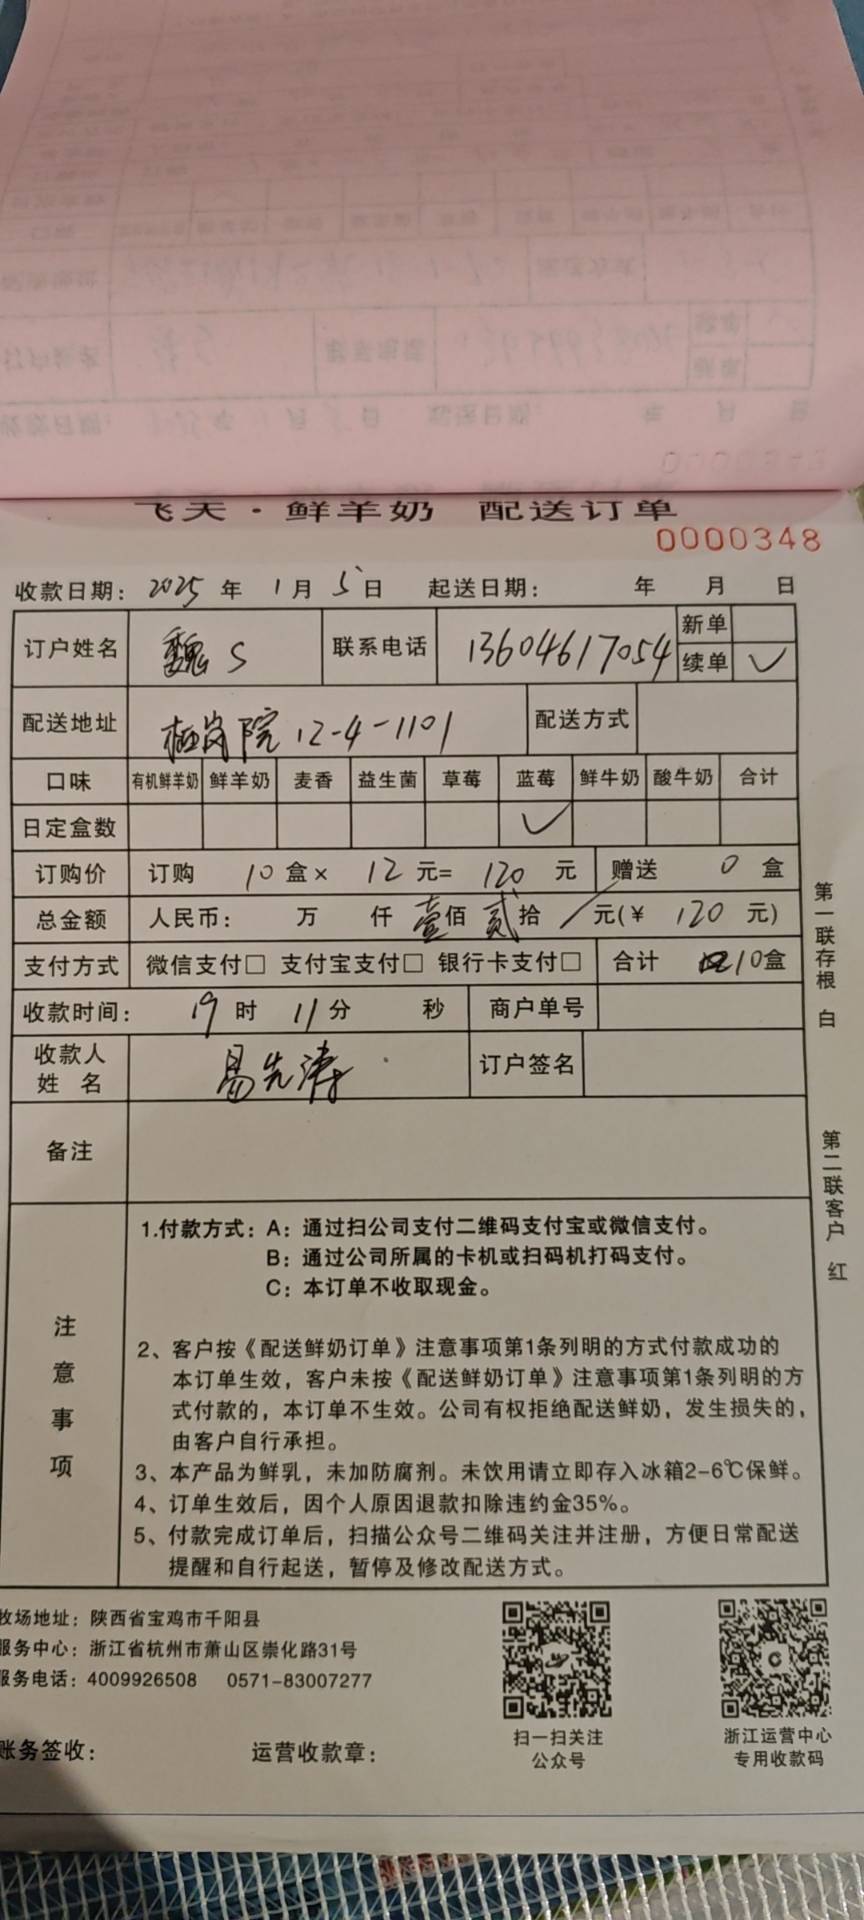 飞天·鲜羊奶 配送订单
0000348
收款日期： 2025 年 1 月 5 日 起送日期： 年 月 日
订户姓名 魏S 联系电话 13604617054 新单
续单 ✓
配送地址 12-4-1101 配送方式
口味 有机鲜羊奶 鲜羊奶 麦香 益生菌 草莓 蓝莓 鲜牛奶 酸牛奶 合计
日定盒数 ✓
订购价 订购 10 盒× 12 元= 120 元 赠送 0 盒
总金额 人民币： 万 仟 壹佰 贰拾 / 元(¥ 120 元)
支付方式 微信支付□ 支付宝支付□ 银行卡支付□ 合计 10盒
收款时间： 19 时 11 分 秒 商户单号
收款人
姓 名 易先涛 订户签名
备注
注意事项
1.付款方式：A：通过扫公司支付二维码支付宝或微信支付。
B：通过公司所属的卡机或扫码机打码支付。
C：本订单不收取现金。
2、客户按《配送鲜奶订单》注意事项第1条列明的方式付款成功的
本订单生效，客户未按《配送鲜奶订单》注意事项第1条列明的方
式付款的，本订单不生效。公司有权拒绝配送鲜奶，发生损失的，
由客户自行承担。
3、本产品为鲜乳，未加防腐剂。未饮用请立即存入冰箱2-6℃保鲜。
4、订单生效后，因个人原因退款扣除违约金35%。
5、付款完成订单后，扫描公众号二维码关注并注册，方便日常配送
提醒和自行起送，暂停及修改配送方式。
第一联存根 白
第二联客户 红
牧场地址：陕西省宝鸡市千阳县
服务中心：浙江省杭州市萧山区崇化路31号
服务电话：4009926508 0571-83007277
账务签收： 运营收款章：
扫一扫关注
公众号
浙江运营中心
专用收款码